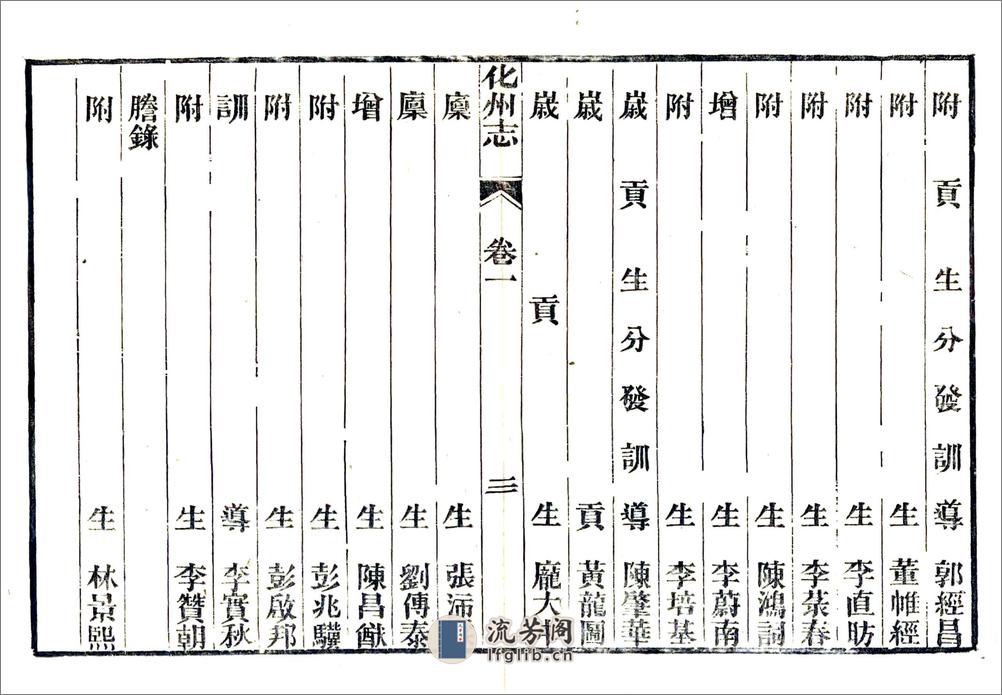 附貢生分發訓導郭經昌
附生董帷經
附生李直昉
附生李棻春
附生陳鴻詞
增生李蔚南
附生李培基
歲貢生分發訓導陳肇華
歲貢黃龍圖
歲貢生龐大
化州志 卷一 二
廩生張沛
廩生劉傳泰
增生陳昌猷
附生彭兆驥
附生彭啟邦
訓導李實秋
附生李贊朝
謄錄
附生林景熙
流芳閣
lfglib.cn